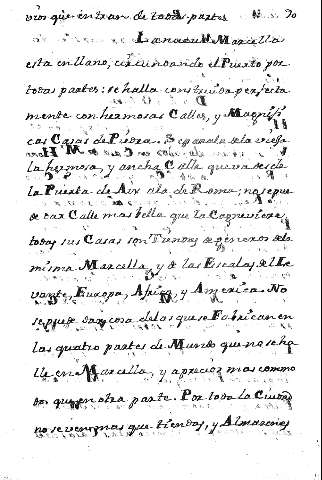 vios que entran de todas partes 90
La nueva Marcella
esta en llano, circundando el Puerto por
todas partes: se halla construida perfecta
mente con hermosas Calles, y Magnifi
cas Casas de Piedra. Separada de la vieja
la hermosa, y ancha Calle que va desde
la Puerta de Aix ala de Roma; no se pue
de dar Calle mas bella que la Cogneviere
todas sus Casas son Tiendas de generos dela
misma Marcella, y de las Escalas del Le
vante, Europa, Africa, y America. No
se puede dar cosa de las que se Fabrican en
las quatro partes de Mundo que no se ha
lle en Marcella, y a precios mas commo
dos que en otra parte. Por toda la Ciudad
no se ven mas que tiendas, y Almazenes